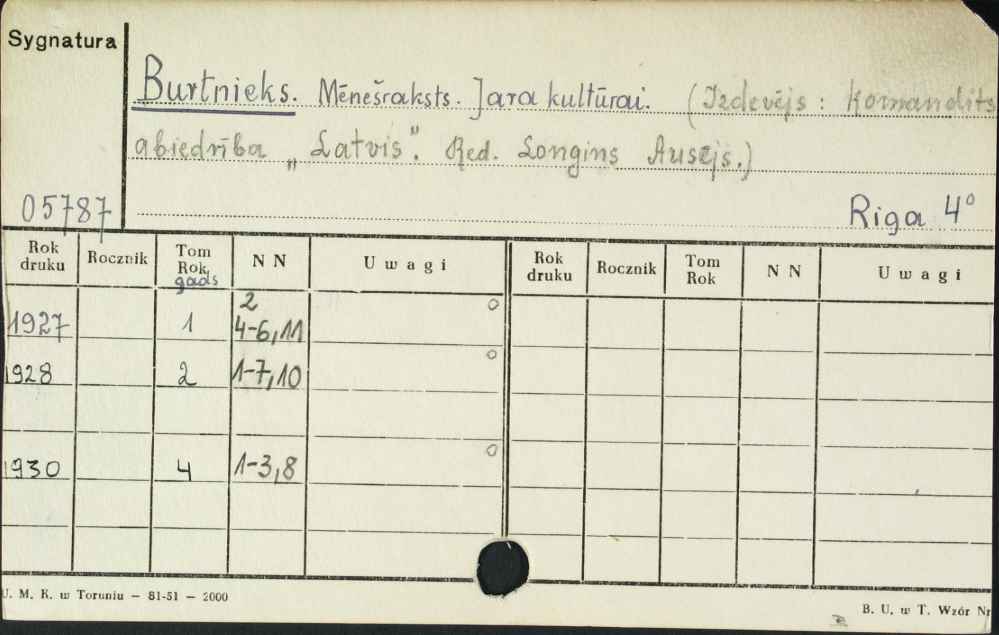 Sygnatura
Burtnieks. Mēnešraksts. Jara kultūrai. (Izdevējs : Komandīts
abiedrība „Latvis". Red. Longins Ausējs.)
05787
Riga 4°
Rok druku Rocznik Tom Rok gads NN Uwagi Rok druku Rocznik Tom Rok NN Uwagi
2
1927 1 4-6,11 o
1928 2 1-7,10 o
1930 4 1-3,8 o
U. M. K. w Toruniu — 81-51 — 2000
B. U. w T. Wzór Nr